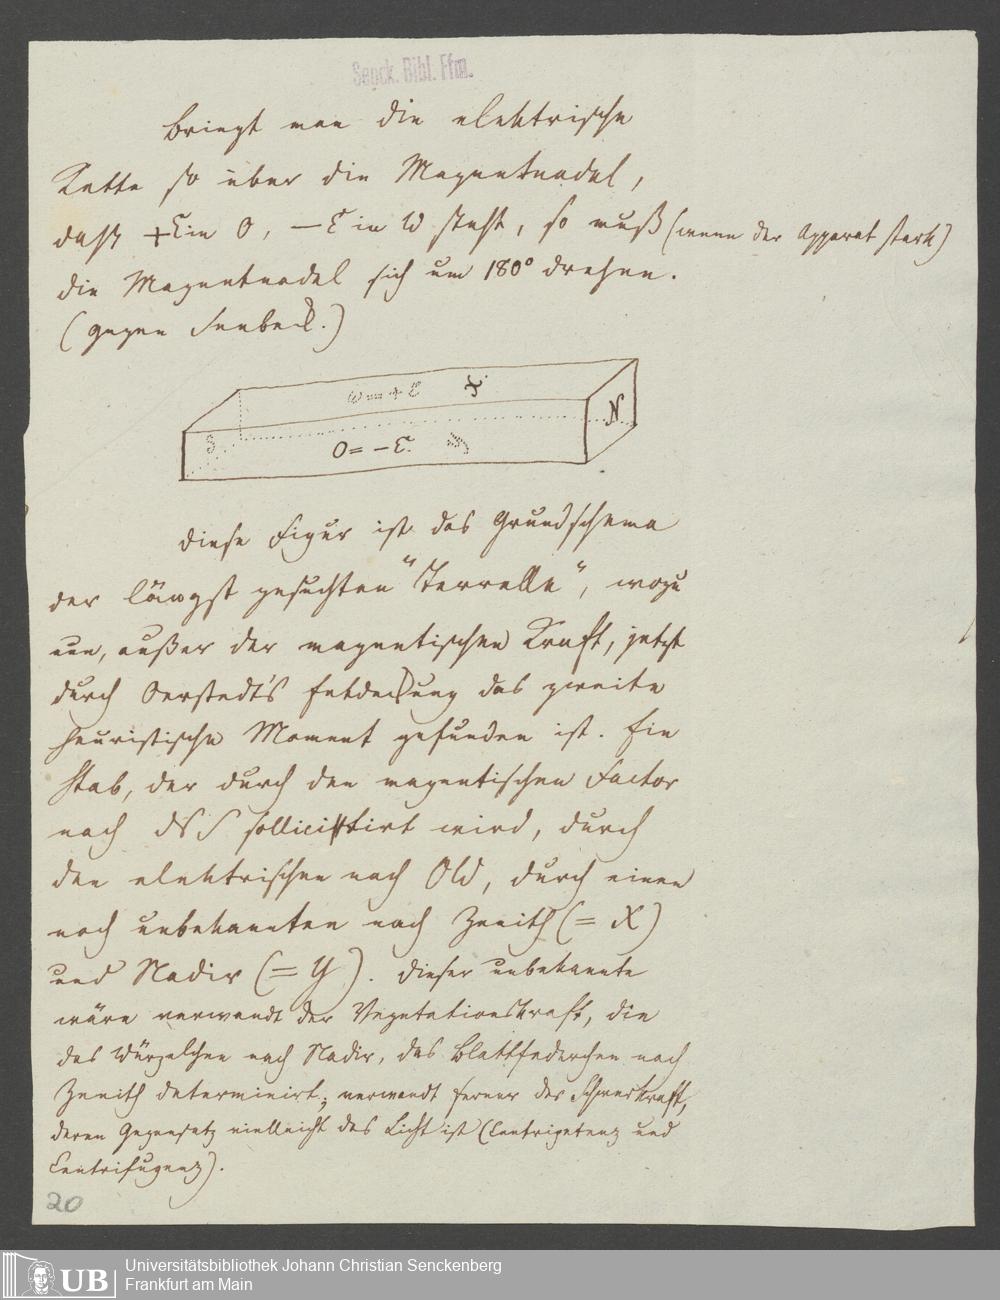 Senck. Bibl. Ffm.
Bringt man die elektrische
Kette so über die Magnetnadel,
daß +E in O, −E in W steht, so muß (wenn der Apparat stark)
die Magnetnadel sich um 180° drehen.
(gegen Seebeck.)
W = + E X
S N
O = − E. Y
Diese Figur ist das Grundschema
der längst gesuchten "Terrelle", wozu
nun, außer der magnetischen Kraft, jetzt
durch Oerstedt's Entdeckung das zweite
heuristische Moment gefunden ist. Ein
Stab, der durch den magnetischen Factor
nach S sollicitirt wird, durch
den elektrischen nach OW, durch einen
noch unbekannten nach Zenith (= X)
und Nadir (= Y). Dieser unbekannte
wäre verwandt der Vegetationskraft, die
das Würzelchen nach Nadir, das Blattfederchen nach
Zenith determinirt; verwandt ferner der Schwerkraft,
deren Gegensatz vielleicht das Licht ist (Centripetenz und
Centrifugenz).
20
UB
Universitätsbibliothek Johann Christian Senckenberg
Frankfurt am Main